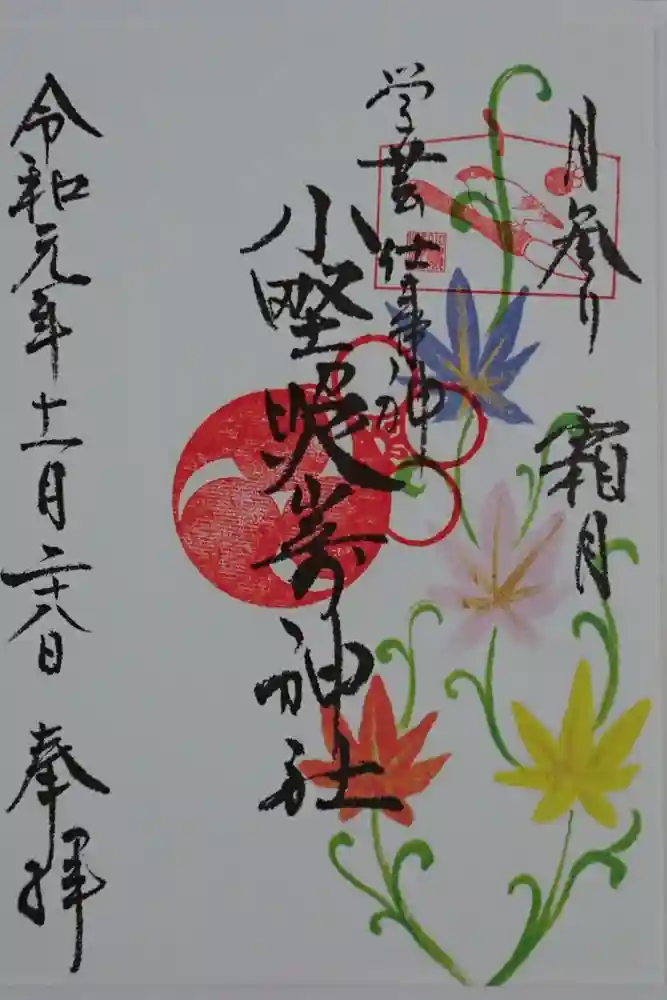 月参り 霜月
学芸仕事神
小野照嵜神社
令和元年十一月二十八日 奉拝